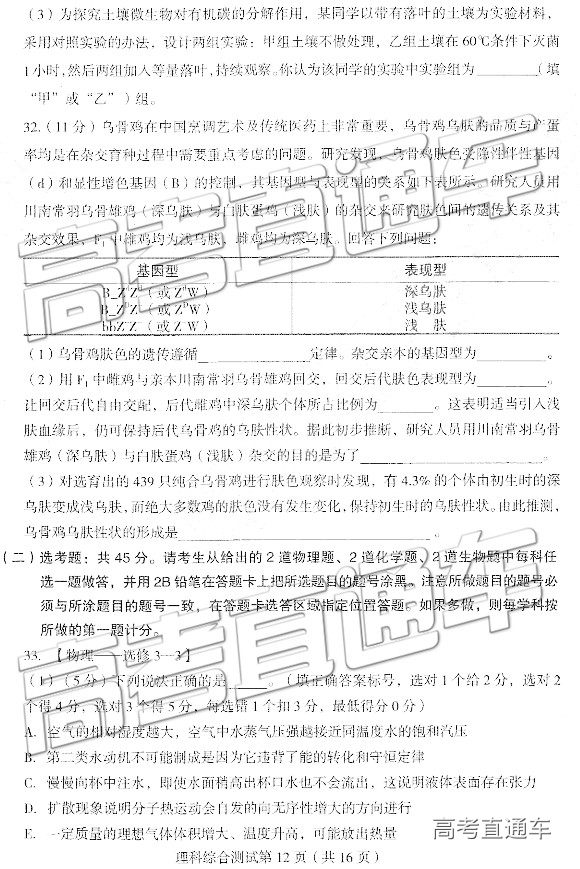 （3）为探究土壤微生物对有机碳的分解作用，某同学以带有落叶的土壤为实验材料，
采用对照实验的办法，设计两组实验：甲组土壤不做处理，乙组土壤在60℃条件下灭菌
1小时,然后两组加入等量落叶,持续观察。你认为该同学的实验中实验组为________（填
“甲”或“乙”）组。
32.（11分）乌骨鸡在中国烹调艺术及传统医药上非常重要，乌骨鸡乌肤的品质与产蛋
率均是在杂交育种过程中需要重点考虑的问题。研究发现，乌骨鸡肤色受隐性伴性基因
（d）和显性增色基因（B）的控制，其基因型与表现型的关系如下表所示。研究人员用
川南常羽乌骨雄鸡（深乌肤）与白肤蛋鸡（浅肤）的杂交来研究肤色间的遗传关系及其
杂交效果，F₁中雄鸡均为浅乌肤，雌鸡均为深乌肤。回答下列问题：
基因型 表现型
B_ZᵈZᵈ（或ZᵈW） 深乌肤
B_ZᴰZ（或ZᴰW） 浅乌肤
bbZ Z（或Z W） 浅 肤
（1）乌骨鸡肤色的遗传遵循____________定律。杂交亲本的基因型为________。
（2）用F₁中雌鸡与亲本川南常羽乌骨雄鸡回交，回交后代肤色表现型为________。
让回交后代自由交配，后代雌鸡中深乌肤个体所占比例为________。这表明适当引入浅
肤血缘后，仍可保持后代乌骨鸡的乌肤性状。据此初步推断，研究人员用川南常羽乌骨
雄鸡（深乌肤）与白肤蛋鸡（浅肤）杂交的目的是为了____________________。
（3）对选育出的439只纯合乌骨鸡进行肤色观察时发现，有4.3%的个体由初生时的深
乌肤变成浅乌肤,而绝大多数鸡的肤色没有发生变化,保持初生时的乌肤性状。由此推测,
乌骨鸡乌肤性状的形成是____________________。
（二）选考题：共45分。请考生从给出的2道物理题、2道化学题、2道生物题中每科任
选一题做答，并用2B铅笔在答题卡上把所选题目的题号涂黑。注意所做题目的题号必
须与所涂题目的题号一致，在答题卡选答区域指定位置答题。如果多做，则每学科按
所做的第一题计分。
33. 【物理——选修3—3】
（1）（5分）下列说法正确的是____。（填正确答案标号，选对1个给2分，选对2
个得4分，选对3个得5分，每选错1个扣3分，最低得分0分）
A. 空气的相对湿度越大，空气中水蒸气压强越接近同温度水的饱和汽压
B. 第二类永动机不可能制成是因为它违背了能的转化和守恒定律
C. 慢慢向杯中注水，即使水面稍高出杯口水也不会流出，这说明液体表面存在张力
D. 扩散现象说明分子热运动会自发的向无序性增大的方向进行
E. 一定质量的理想气体体积增大、温度升高，可能放出热量
高考直通车
理科综合测试第12页（共16页）
高考直通车
高考直通车